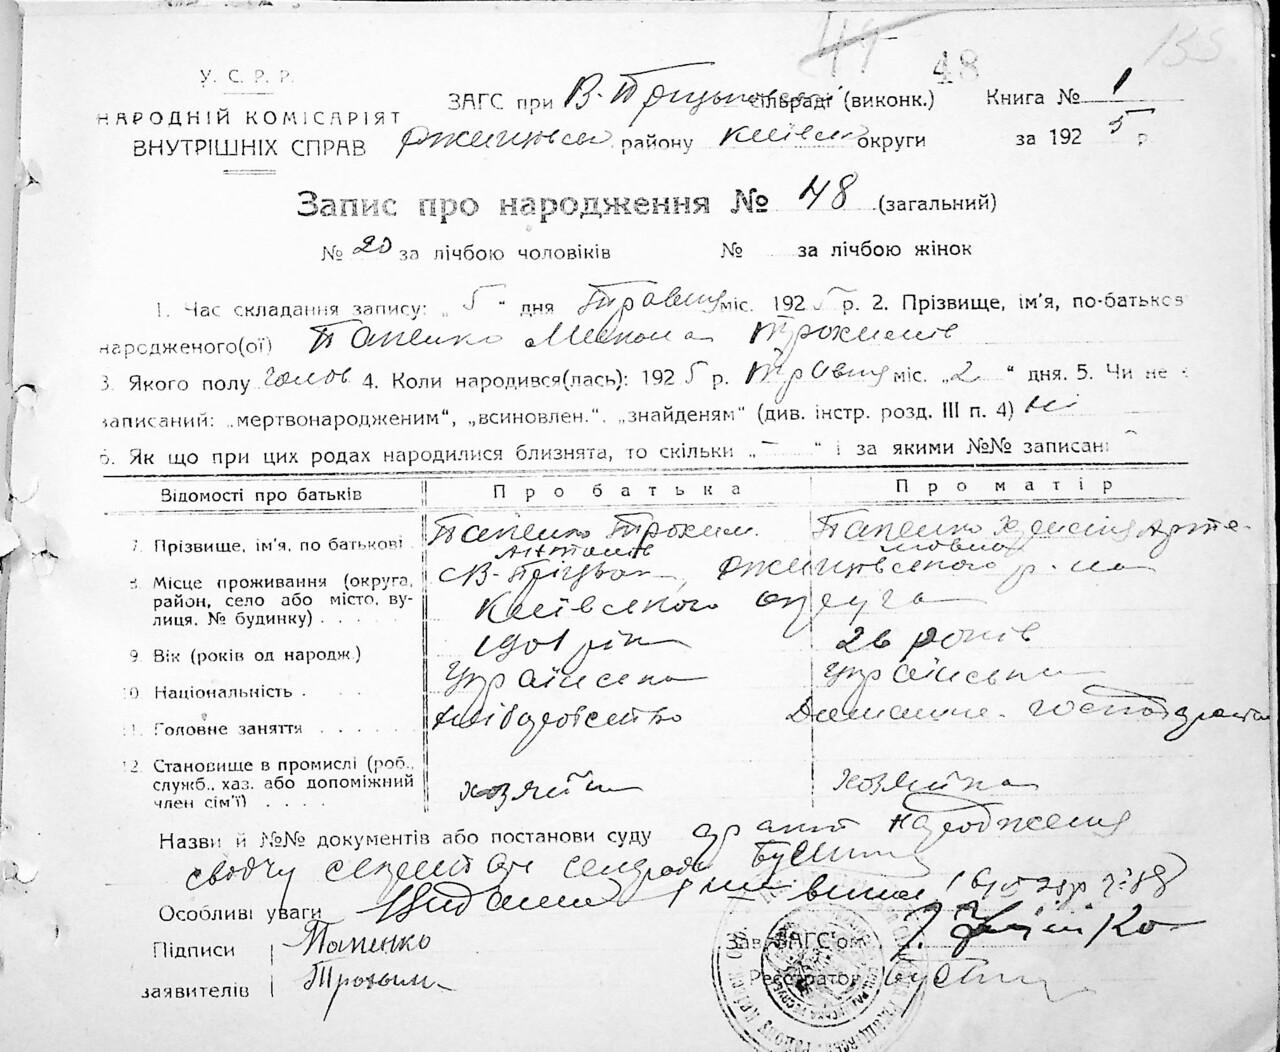 48 155
У. С. Р. Р.
НАРОДНІЙ КОМІСАРІЯТ
ВНУТРІШНІХ СПРАВ
ЗАГС при В-Пріцьківській сільраді (виконк.) Книга № 1
району Київської округи за 1925 р.
Запис про народження № 48 (загальний)
№ 20 за лічбою чоловіків № за лічбою жінок
1. Час складання запису: „5" дня Травня міс. 1925 р. 2. Прізвище, ім'я, по-батькові
народженого(ої) Папенко Микола Трохимів
3. Якого полу чолов 4. Коли народився(лась): 1925 р. Травня міс. „2" дня. 5. Чи не є
записаний: „мертвонародженим", „всиновлен.", „знайденям" (див. інстр. розд. III п. 4) ні
6. Як що при цих родах народилися близнята, то скільки „—" і за якими №№ записані —
Відомості про батьків Про батька Про матір
7. Прізвище, ім'я, по батькові Папенко Трохим Антонів Папенко Арте-
мовна
8. Місце проживання (округа, район, село або місто, вулиця, № будинку) с. В-Пріцьки, р-на
Київського округа
9. Вік (років од народж.) 1901 рік 26 років
10. Національність Українська українська
11. Головне заняття хліборобство Домашнє господарство
12. Становище в промислі (роб., служб., хаз. або допоміжний член сім'ї) хозяїн хозяйка
Назви й №№ документів або постанови суду факт народження
свідчу секретар сельради Бустин
Особливі уваги Видана
Підписи Папенко Зав. ЗАГС'ом
заявителів Трохим Реєстратор Бустин